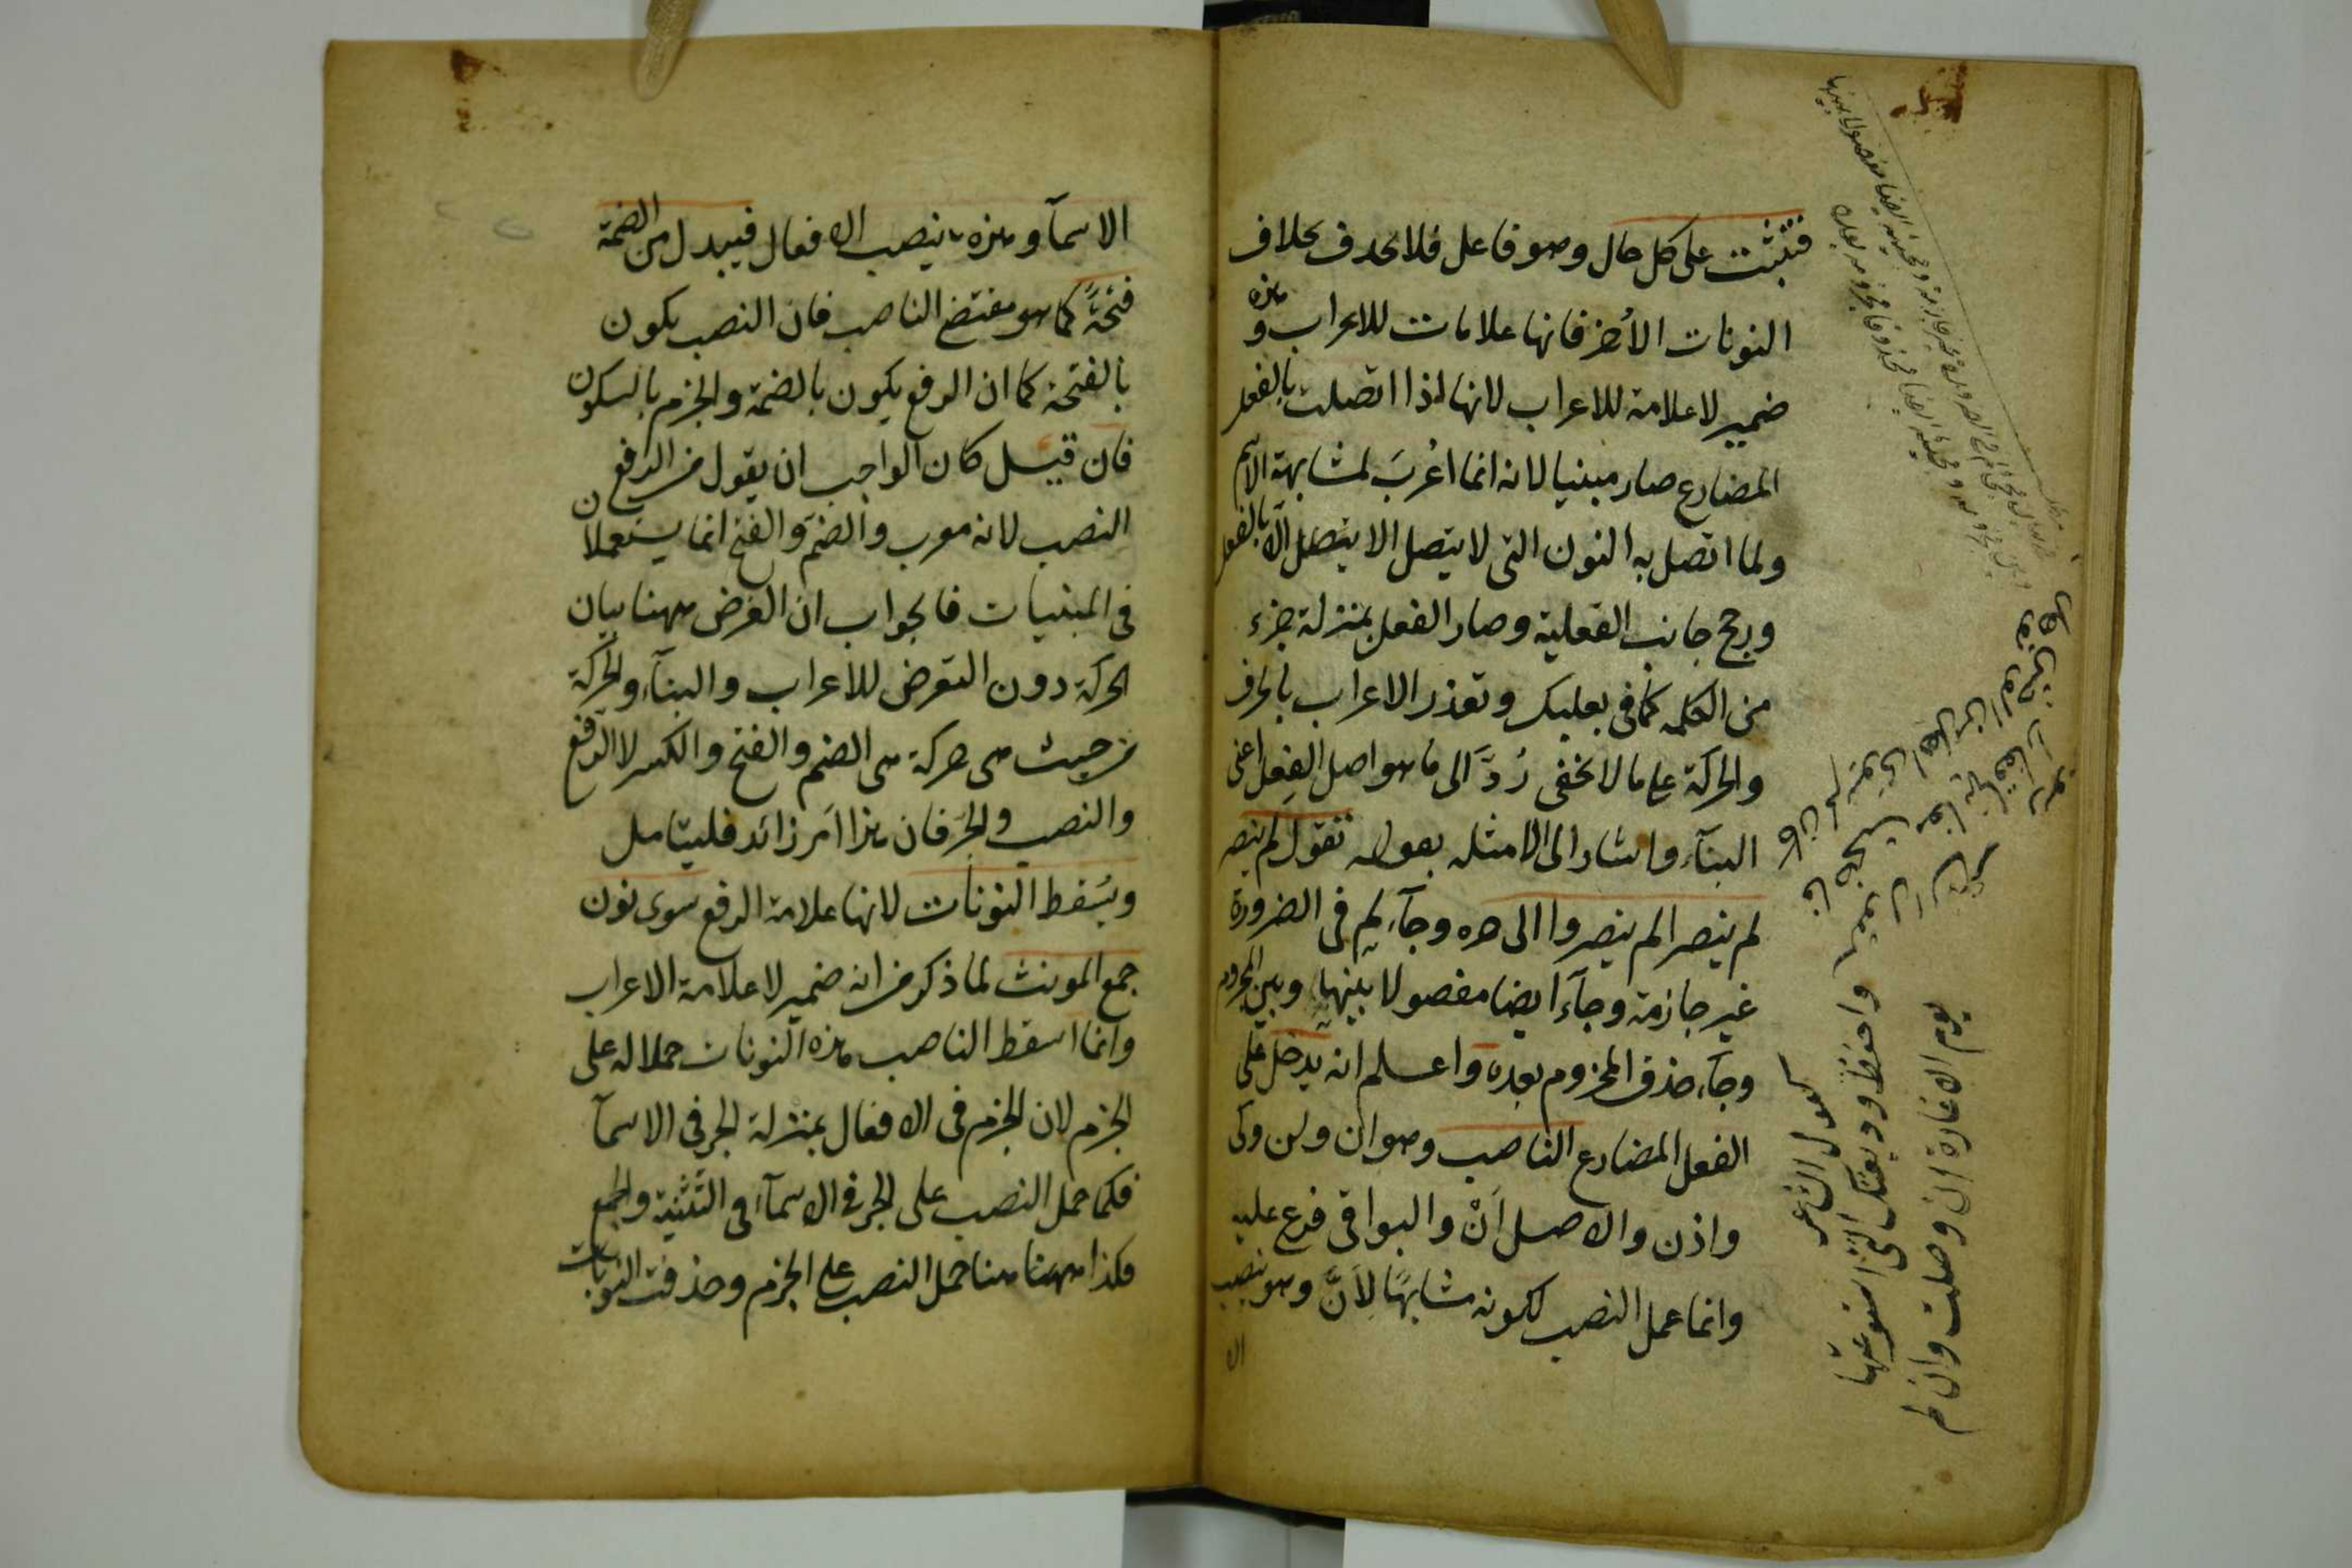 فتثبت على كل حال وهو فاعل فلا يحذف بخلاف
النونات الأخر فانها علامات للاعراب و هذه
ضمير لا علامة للاعراب لانها اذا اتصلت بالفعل
المضارع صار مبنيا لانه انما اُعْربَ لمشابهة الاسم
ولما اتصل به النون التى لا يتصل الا يتصل الا بالفعل
ورجح جانب الفعلية وصار الفعل بمنزلة جزء
من الكلمه كما فى بعلبك وتعذر الاعراب بالحرف
والحركة على ما لا يخفى رُدَّ الى ما هو اصل الفِعل اعنى
البنآء واشار الى الامثله بقوله تقول لم ينصر
لم ينصرا لم ينصروا الى اخره وجآء لم فى الضرورة
غير جازمة وجآء ايضا مفصولا بينها وبين المجزوم
وجآء حذف المجزوم بعده واعلم انه يدخل على
الفعل المضارع الناصب وهو ان ولن وكى
واذن والاصل اَنْ والبواقى فرع عليه
وانما عمل النصب لكونه مشابهًا لِاَنَّ وهو ينصب
الا
كقول الشاعر
واحفظ وديعتك التى استودعتها
يوم الاغارة ان وصلت وان لم
الاسمآء وهذه ينصب الافعال فيبدل من الضمة
فتحةً كما هو مقتضى الناصب فان النصب يكون
بالفتحة كما ان الرفع يكون بالضمة والجزم بالسكون
فان قيل كان الواجب ان يقول من الرفع
النصب لانه معرب والضم والفتح انما يستعملان
فى المبنيات فالجواب ان الغرض ههنا بيان
الحركة دون التعرض للاعراب والبنآء والحركة
من حيث هى حركة هى الضم والفتح والكسر لا الرفع
والنصب والجر فان هذا اَمر زائد فليتامل
ويُسقط النونات لانها علامة الرفع سوى نون
جمع المونث لما ذكر من انه ضمير لا علامة الاعراب
وانما اسقط الناصب هذه النونات حملا له على
الجزم لان الجزم فى الافعال بمنزلة الجر فى الاسمآ
فكما حمل النصب على الجر فى الاسمآء فى التثنية والجمع
فكذا ههنا هنا حمل النصب على الجزم وحذفت النونات